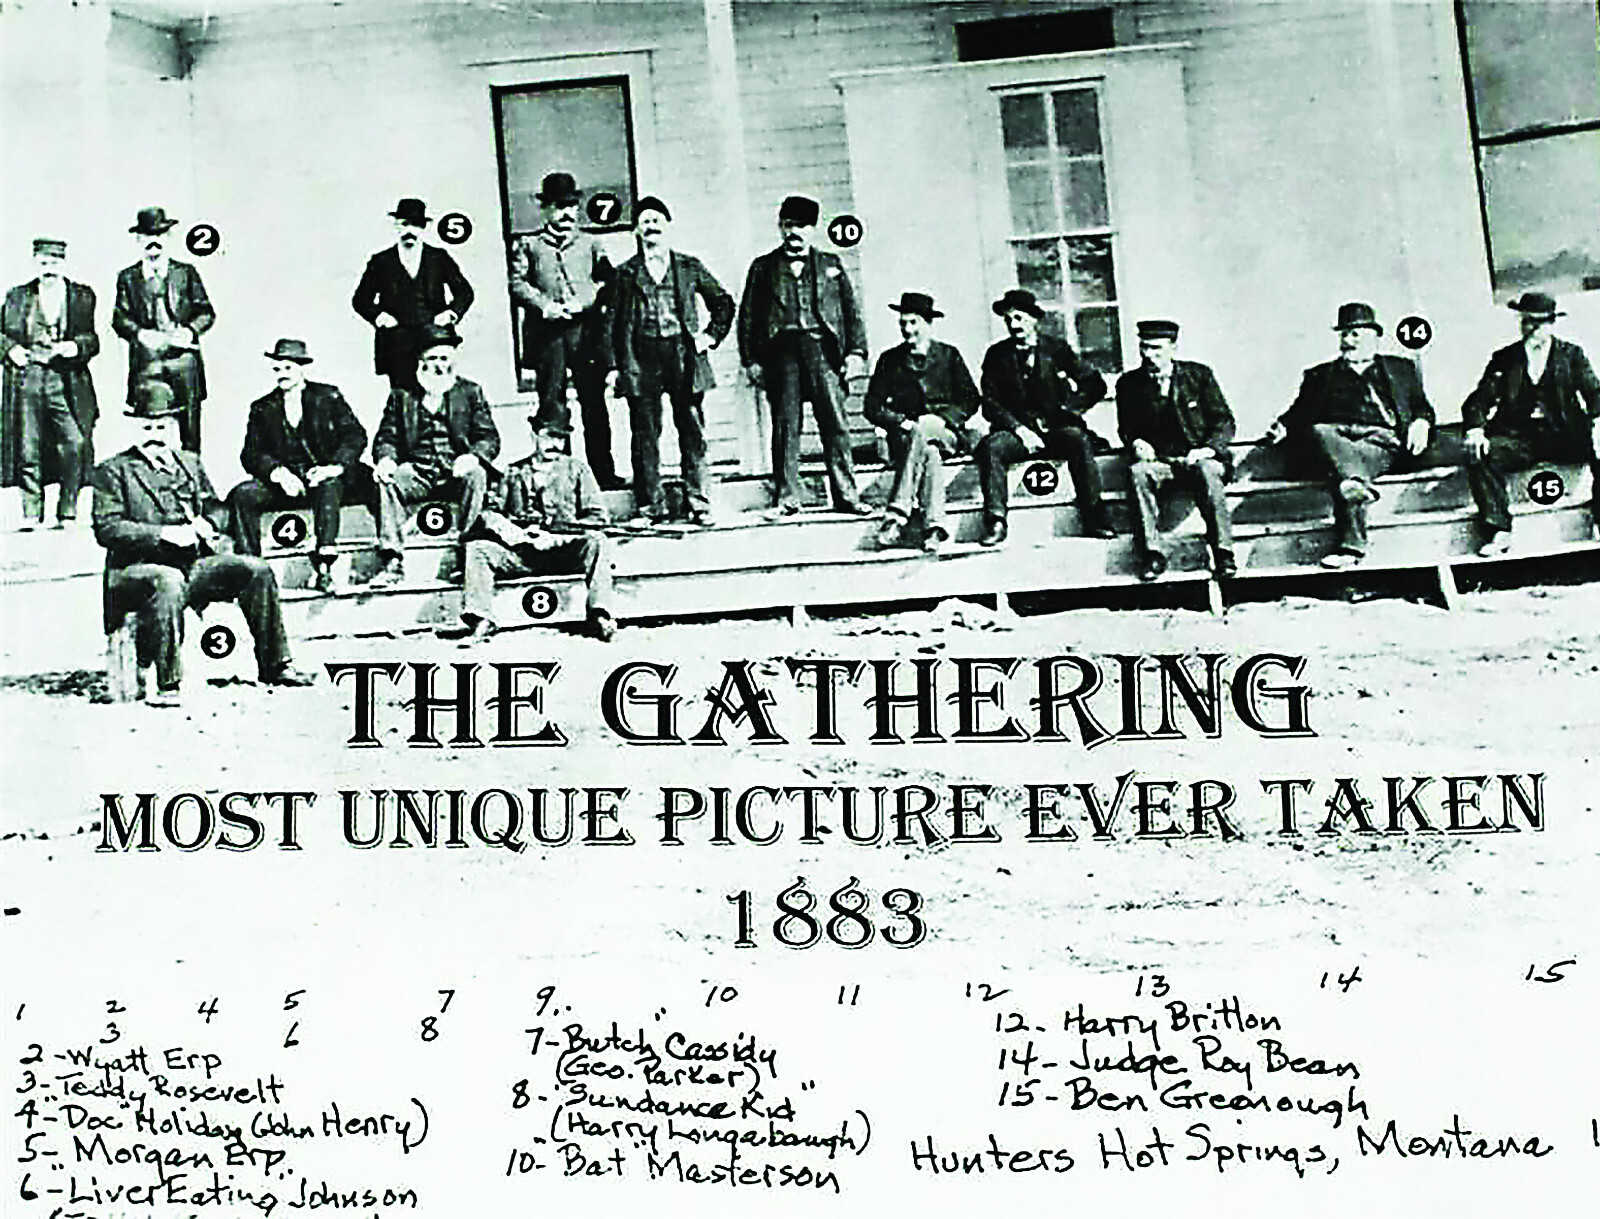 2
5
7
10
14
12
15
4
6
8
3
THE GATHERING
MOST UNIQUE PICTURE EVER TAKEN
1883
1 2 4 5 7 9 10 11 12 13 14 15
3 6 8
2-Wyatt Erp
3-"Teddy" Rosevelt
4-"Doc" Holiday (John Henry)
5- Morgan Erp.
6-"Liver Eating" Johnson
7-Butch Cassidy
(Geo. Parker)
8-"Sundance Kid"
(Harry Longabaugh)
10-"Bat" Masterson
12- Harry Britton
14- Judge Roy Bean
15-Ben Greenough
Hunters Hot Springs, Montana